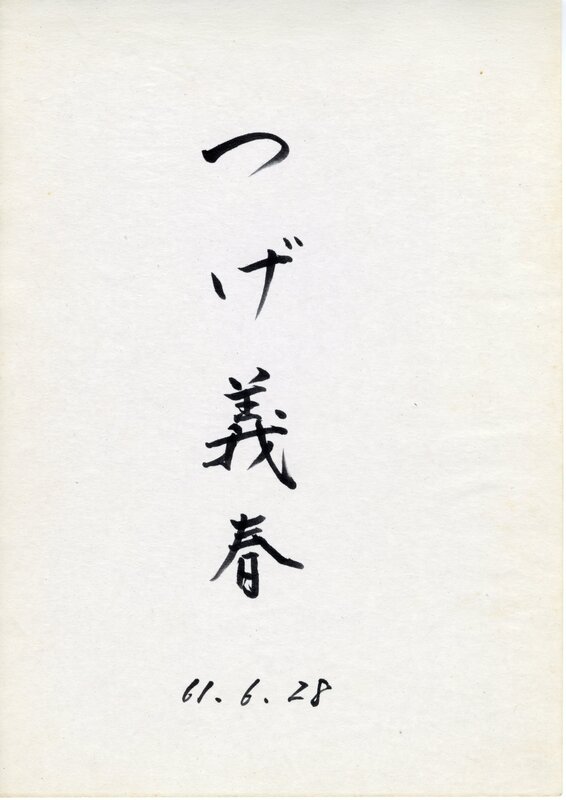 つげ義春
61.6.28